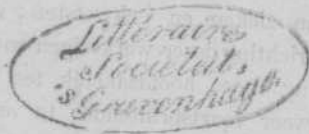 Litteraire
Societeit,
's Gravenhage.